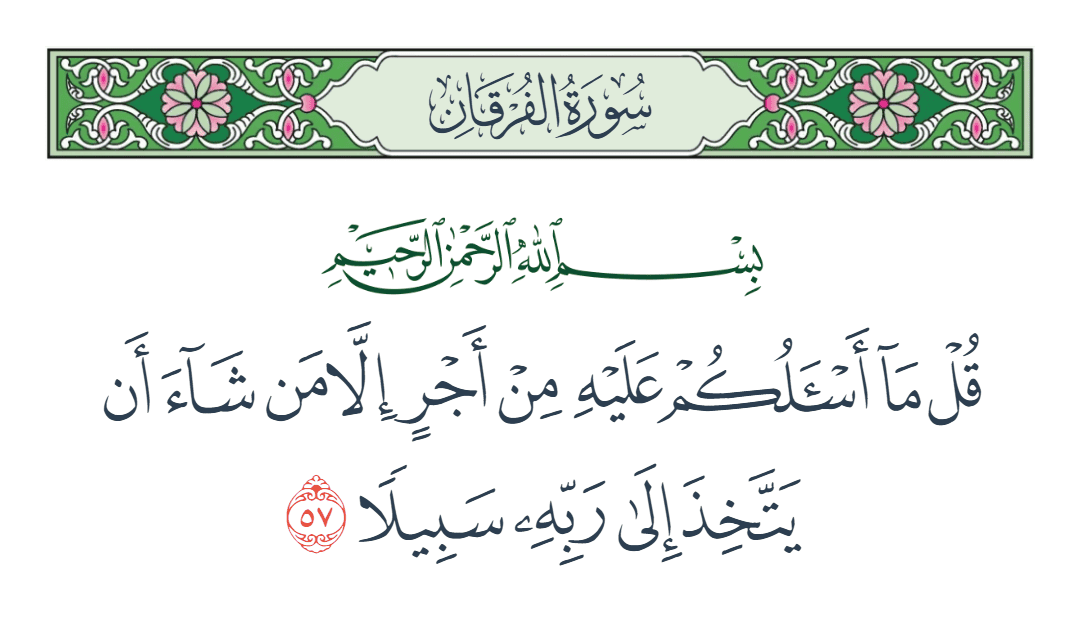 سُورَةُ الفُرْقَانِ
بِسْمِ ٱللَّهِ ٱلرَّحْمَٰنِ ٱلرَّحِيمِ
قُلْ مَآ أَسْـَٔلُكُمْ عَلَيْهِ مِنْ أَجْرٍ إِلَّا مَن شَآءَ أَن
يَتَّخِذَ إِلَىٰ رَبِّهِۦ سَبِيلًا ٥٧